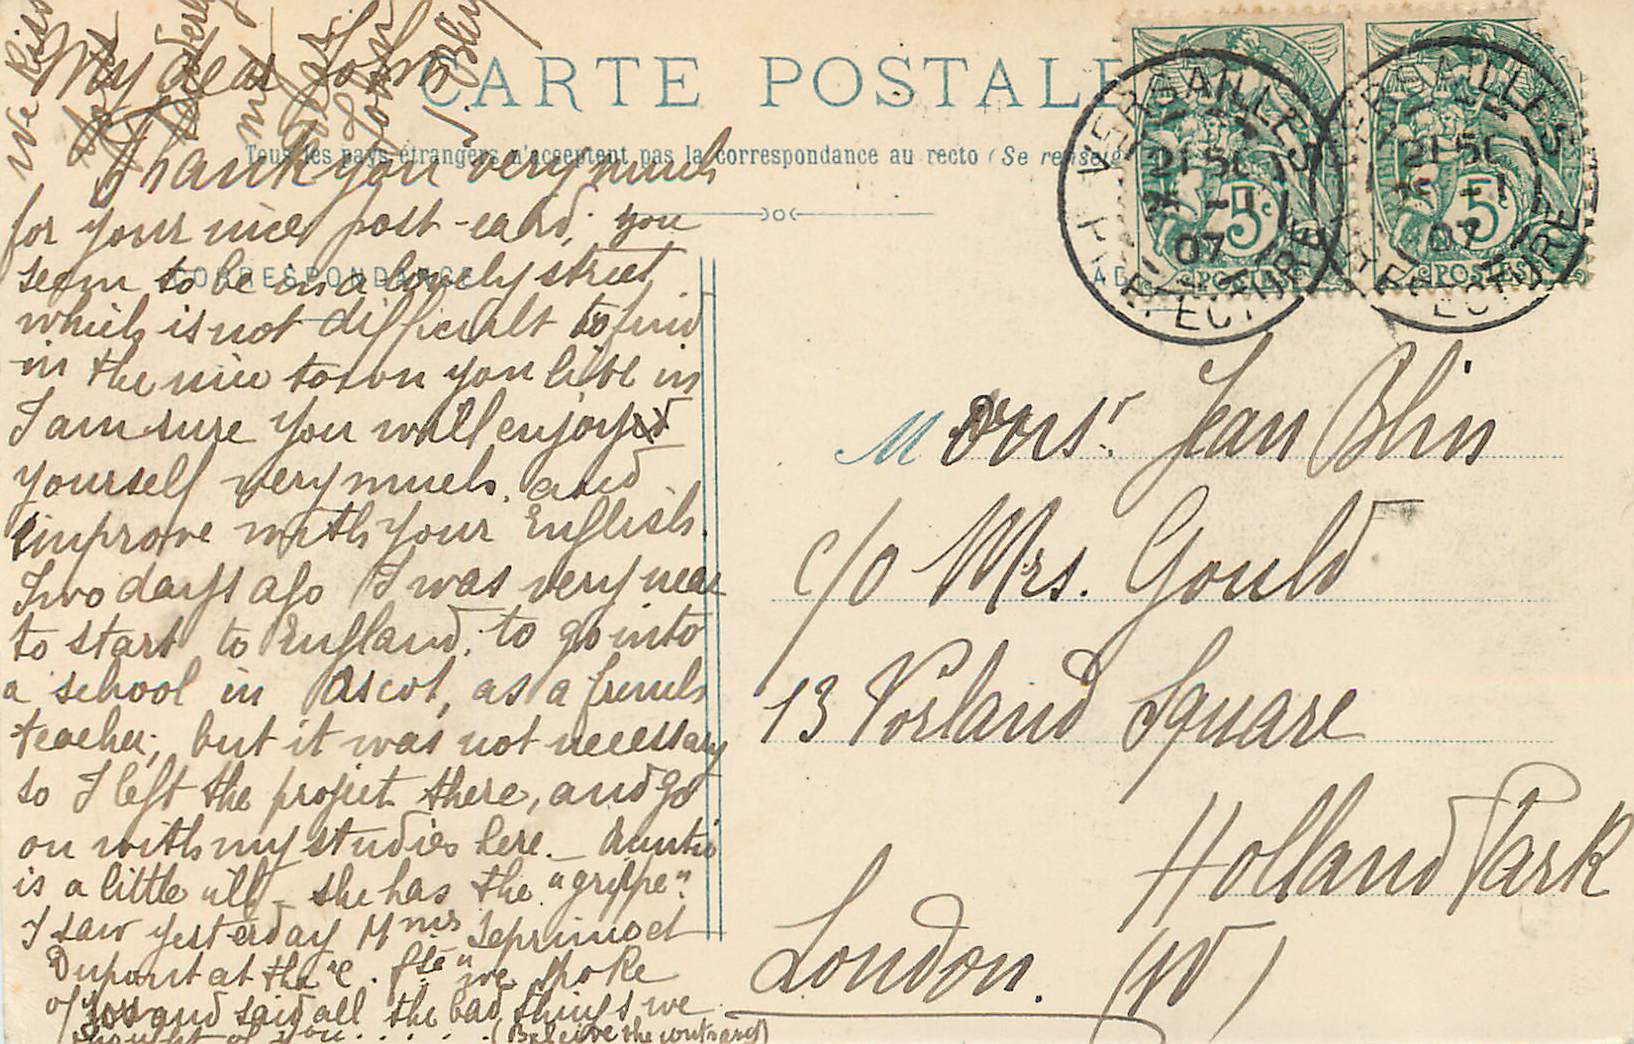 CARTE POSTALE
Tous les pays étrangers n'acceptent pas la correspondance au recto (Se renseig
CORRESPONDANCE
AD
My dear John
Thank you very much
for your nice post-card; you
seem to be in a lovely street
which is not difficult to find
in the nice town you live in
I am sure you will enjoy
yourself very much, and
improve with your English.
Two days ago I was very near
to start to England; to go into
a school in Ascot, as a french
teacher; but it was not necessary
so I left the project there, and go
on with my studies here. _ Auntie
is a little ill _ she has the "grippe".
I saw yesterday Mmes Seprimoet
Dupont at the "C. Fse" we spoke
of you and said all the bad things we
thought of you..... (Beleive the contrary)
we kiss
J. Blin
VERSAILLES
21 50
25 -1
07
PREFECTURE
5c
POSTES
VERSAILLES
21 50
25 -1
07
PREFECTURE
5c
POSTES
M Monsr. Jean Blin
c/o Mrs. Gould
13 Norland Square
Holland Park
London. (W)